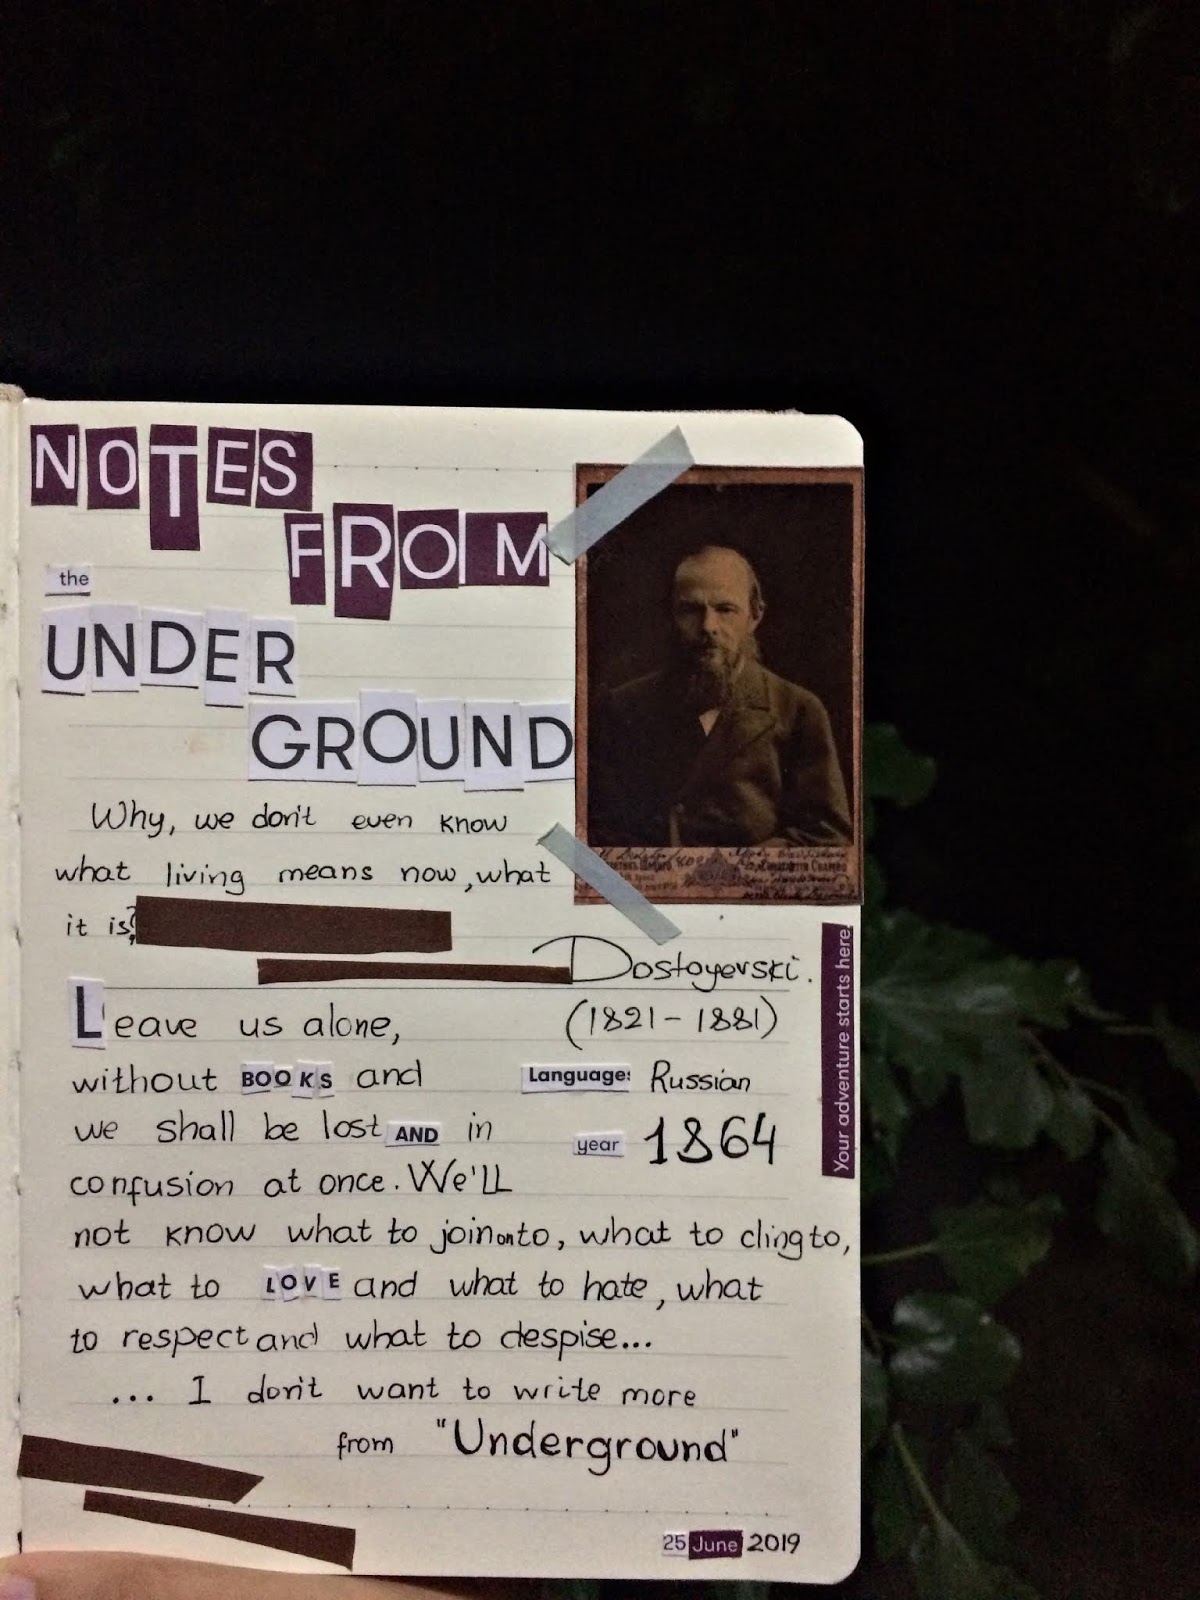 NOTES
FROM
the
UNDER
GROUND
Why, we don't even know
what living means now, what
it is?
Dostoyevski.
(1821-1881)
Language: Russian
year 1864
Your adventure starts here
Leave us alone,
without BOOKS and
we shall be lost AND in
confusion at once. We'll
not know what to join on to, what to cling to,
what to LOVE and what to hate, what
to respect and what to despise...
... I don't want to write more
from "Underground"
25 June 2019